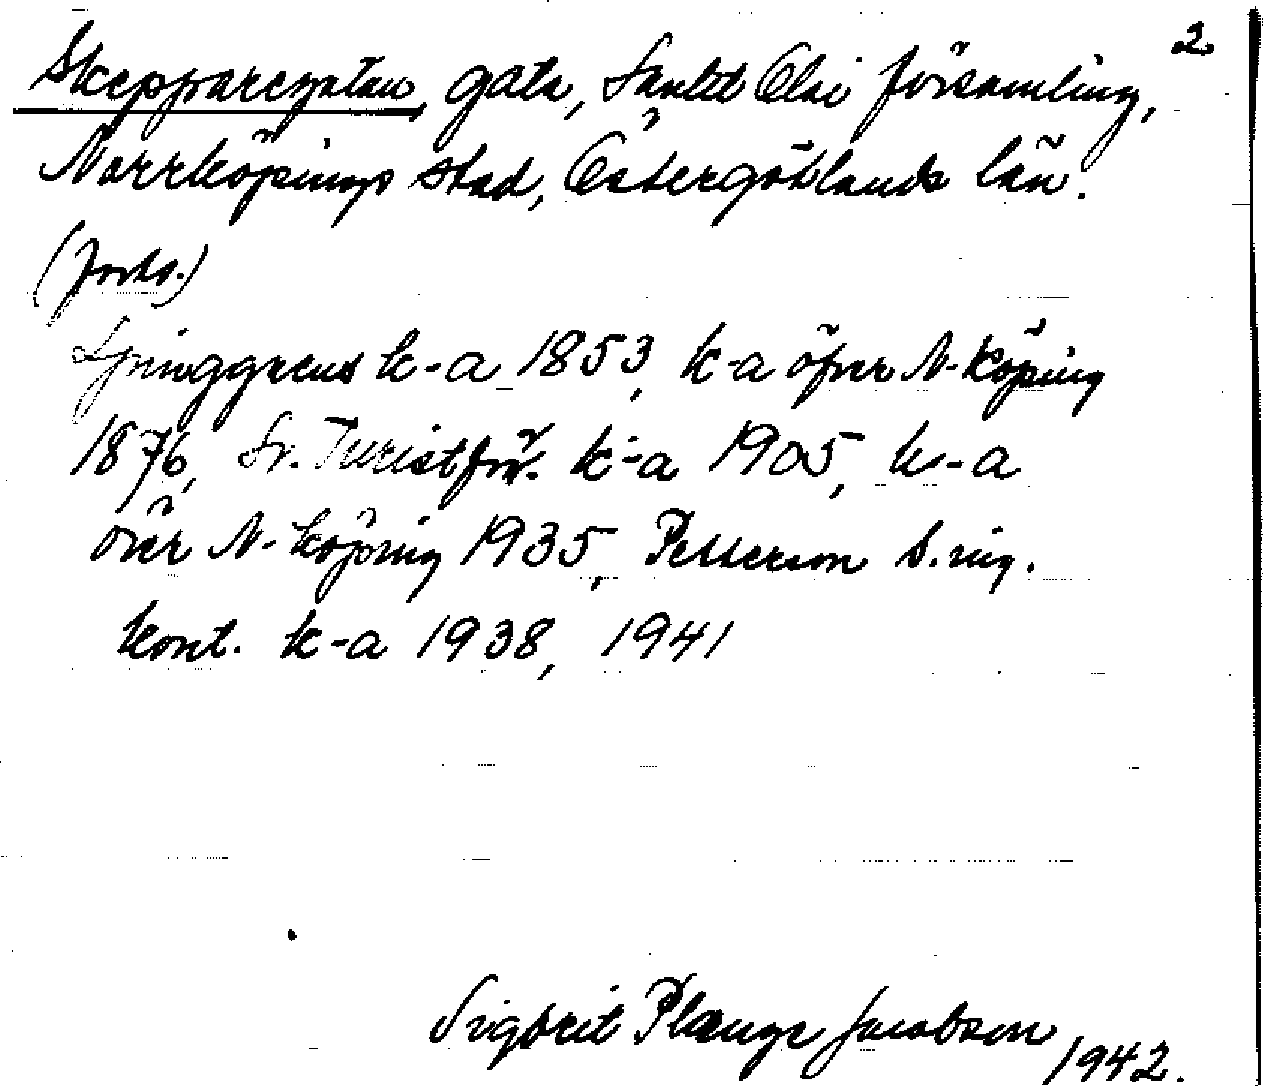 2
Skepparegatan, gata, Sankt Olai församling,
Norrköpings stad, Östergötlands län.
(forts.)
Ljunggrens k-a 1853, k-a öfver N-köping
1876, Sv. Turistför. k-a 1905, k-a
över N-köping 1935, Petterson b. ing.
kont. k-a 1938, 1941
Sigbrit Plænge Jacobson
1942.